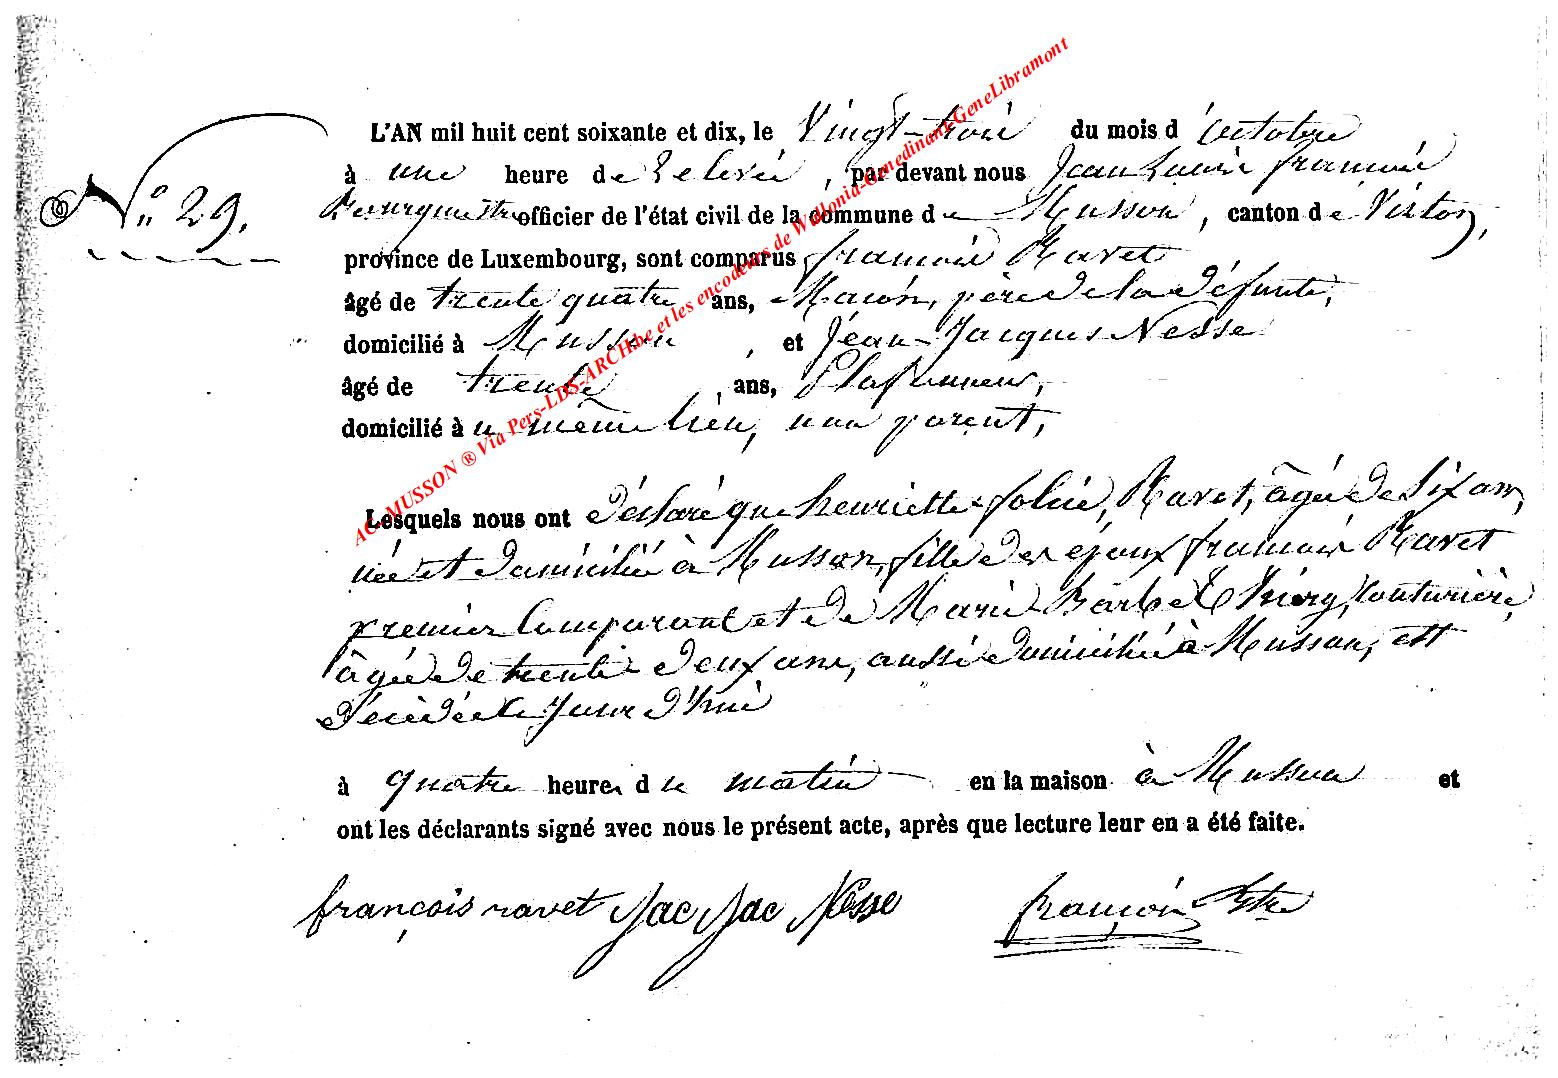 L'AN mil huit cent soixante et dix, le Vingt-trois du mois d'octobre
à une heure de relevée, par devant nous Jean Louis françois
N° 29. officier de l'état civil de la commune de Musson, canton de Virton,
province de Luxembourg, sont comparus françois Ravet
âgé de trente quatre ans, Maçon, père de la défunte,
domicilié à Musson, et Jean-Jacques Nesse
âgé de trente ans, Plafonneur,
domicilié à u même lieu, non parent,
Lesquels nous ont déclaré que henriette Ravet, âgée de Six ans,
née et domiciliée à Musson, fille des époux françois Ravet
premier Comparant et de Marie Barbe Thiery, Couturière,
âgée de trente deux ans, aussi domiciliée à Musson, est
décédée le Jour d'hui
à quatre heures du matin en la maison à Musson et
ont les déclarants signé avec nous le présent acte, après que lecture leur en a été faite.
françois ravet Jac Jac Nesse françois
AC-MUSSON ® Via Pers-LDS-ARCH.be et les encodeurs de Wallonia-Genedinant-GeneLibramont